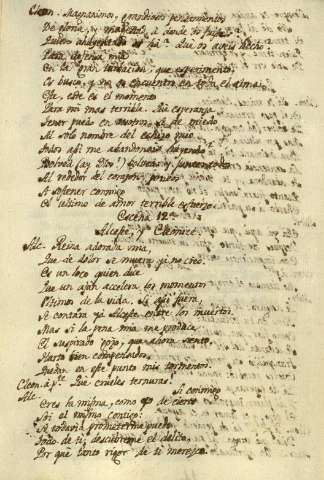 Cleon. Magnanimos, grandiosos pensamientos
De gloria, y magestad, a donde os fuisteis
que os aveis hecho
Para defensa mia
En la gran turbacion, que experimento,
Os busco, y no os encuentro en toda el alma:
Este, este es el momento
Para mi mas terrible. Mi esperanza
Tener puedo en vosotros, si de miedo
Al solo nombre del esposo mio
Todos asi me abandonais huyendo?
Bolved (ay Dios!) bolved, y
Al rededor del corazon
A sostener conmigo
El ultimo de amor terrible esfuerzo.
Escena 12ª
Alceste, y Cleonice.
Alc. Reina adorada mia,
Que de dolor se muera, ya no creo.
Es un loco quien dice
Que un afan acelera los momentos
Ultimos de la vida. Si asi fuera,
Se contara ya Alceste entre los muertos.
Mas si la pena mia me produce
El suspirado gozo, que ahora siento
Harto bien compensados
Quedan en este punto mis tormentos.
Cleon. ap.te Que crueles ternuras!
Alc. Si conmigo
Eres la misma, como yo de cierto
Soi el mismo contigo:
Si todavia prometerme puedo
Todo de ti, descubreme el delito,
Por que tanto rigor de ti merezco.